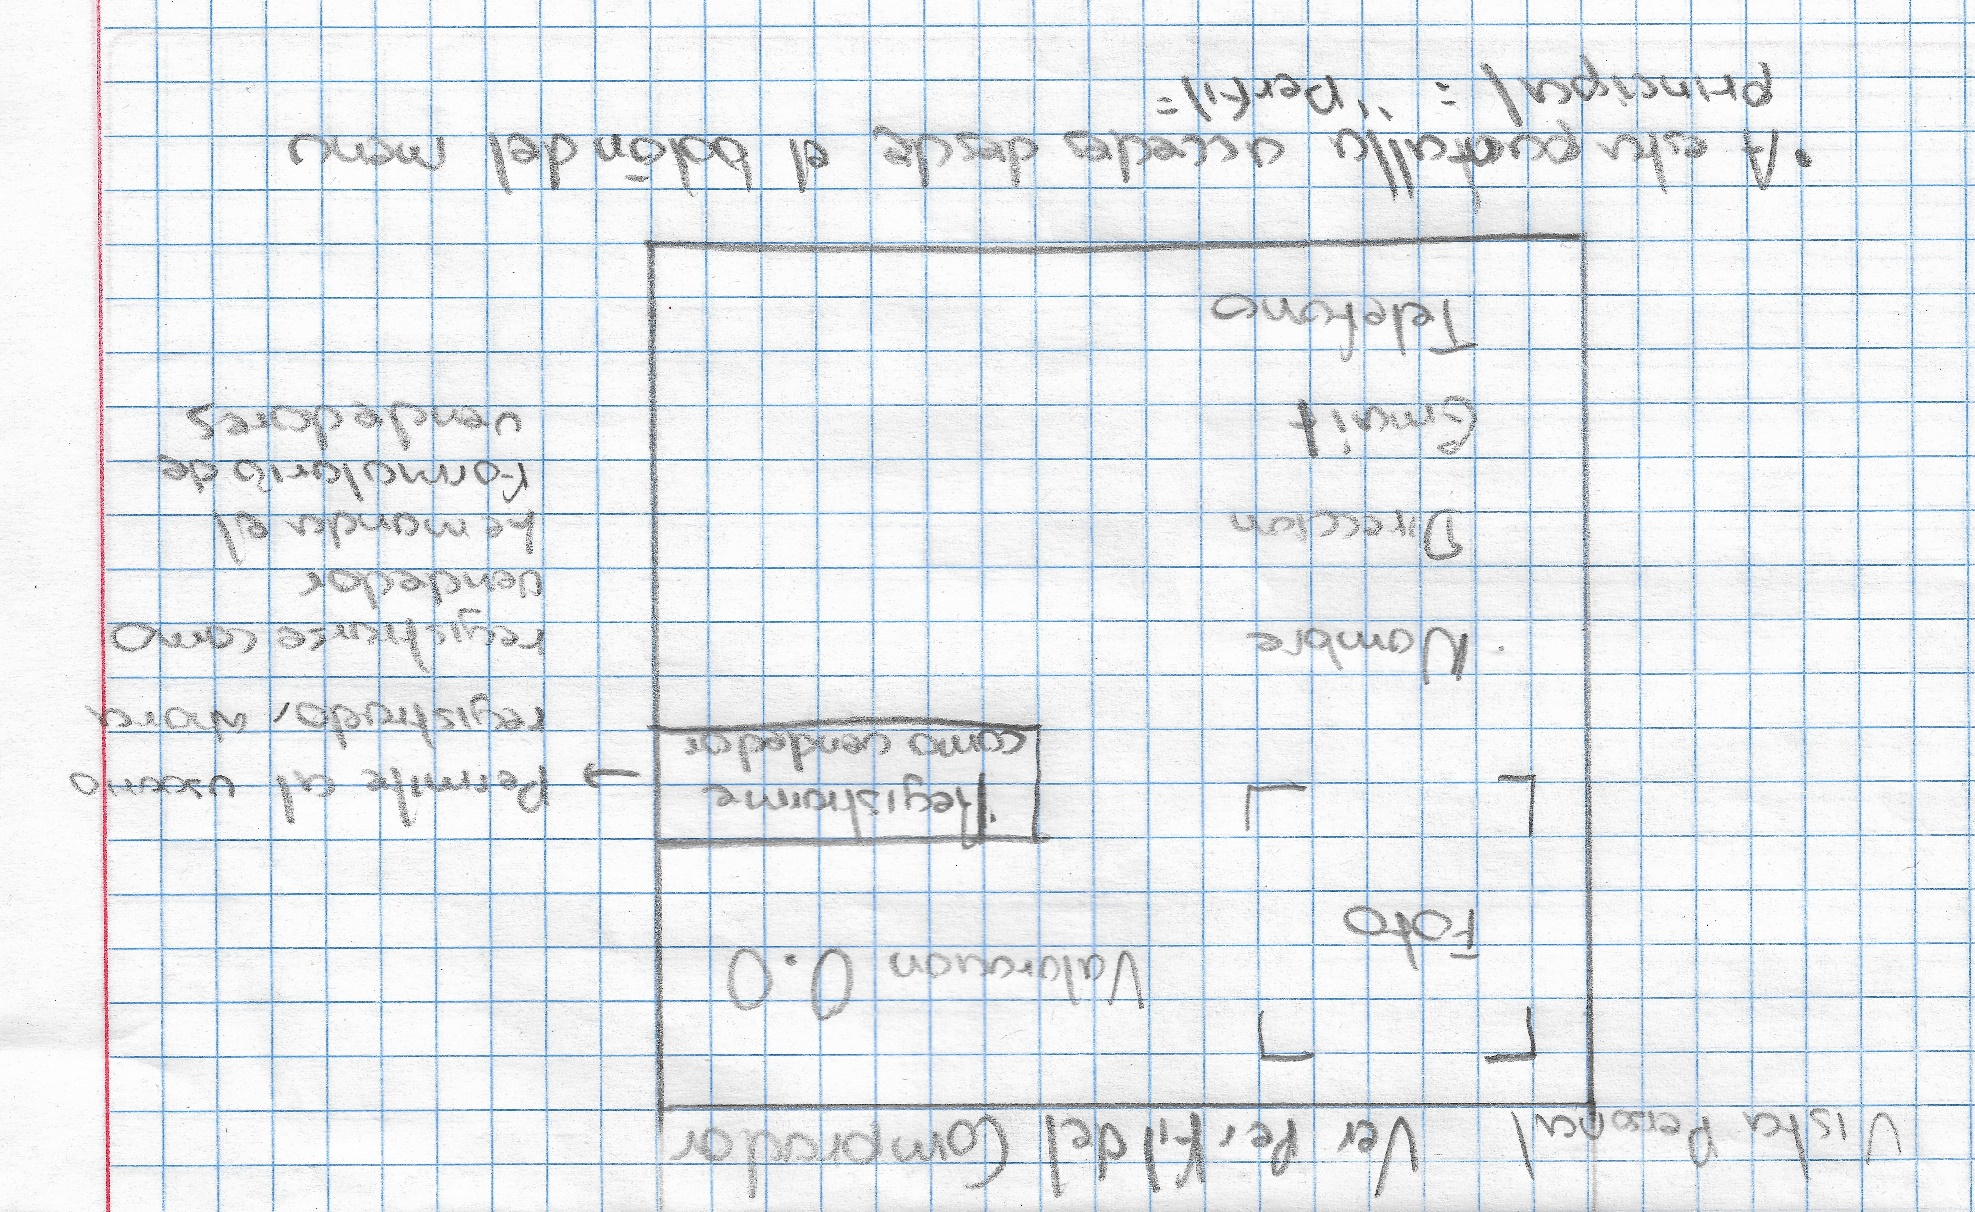 Vista Personal Ver Perfil del Comprador
Foto
Valoracion 0.0
Registrarme
como vendedor
→ Permite al usuario
registrado, vaya
registrarse como
vendedor
Le manda el
Formulario de
vendedores
Nombre
Direccion
Email
Telefono
• A esta pantalla accede desde el botón del menu
principal = "perfil"